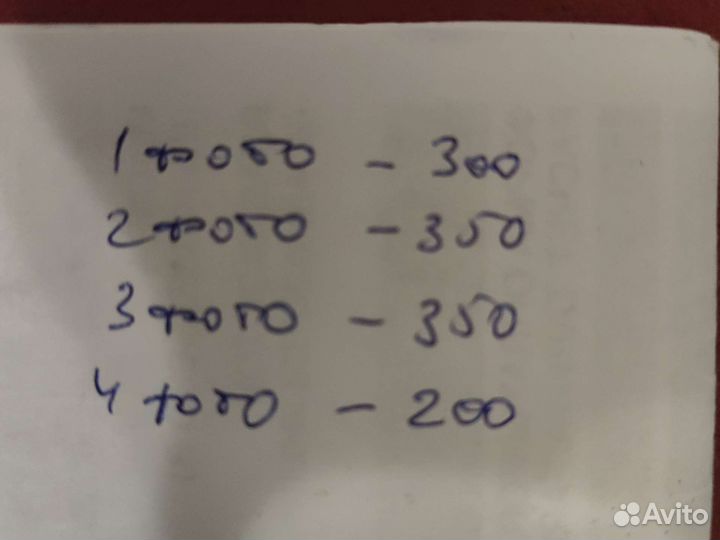 1 фото - 300
2 фото - 350
3 фото - 350
4 фото - 200
Avito